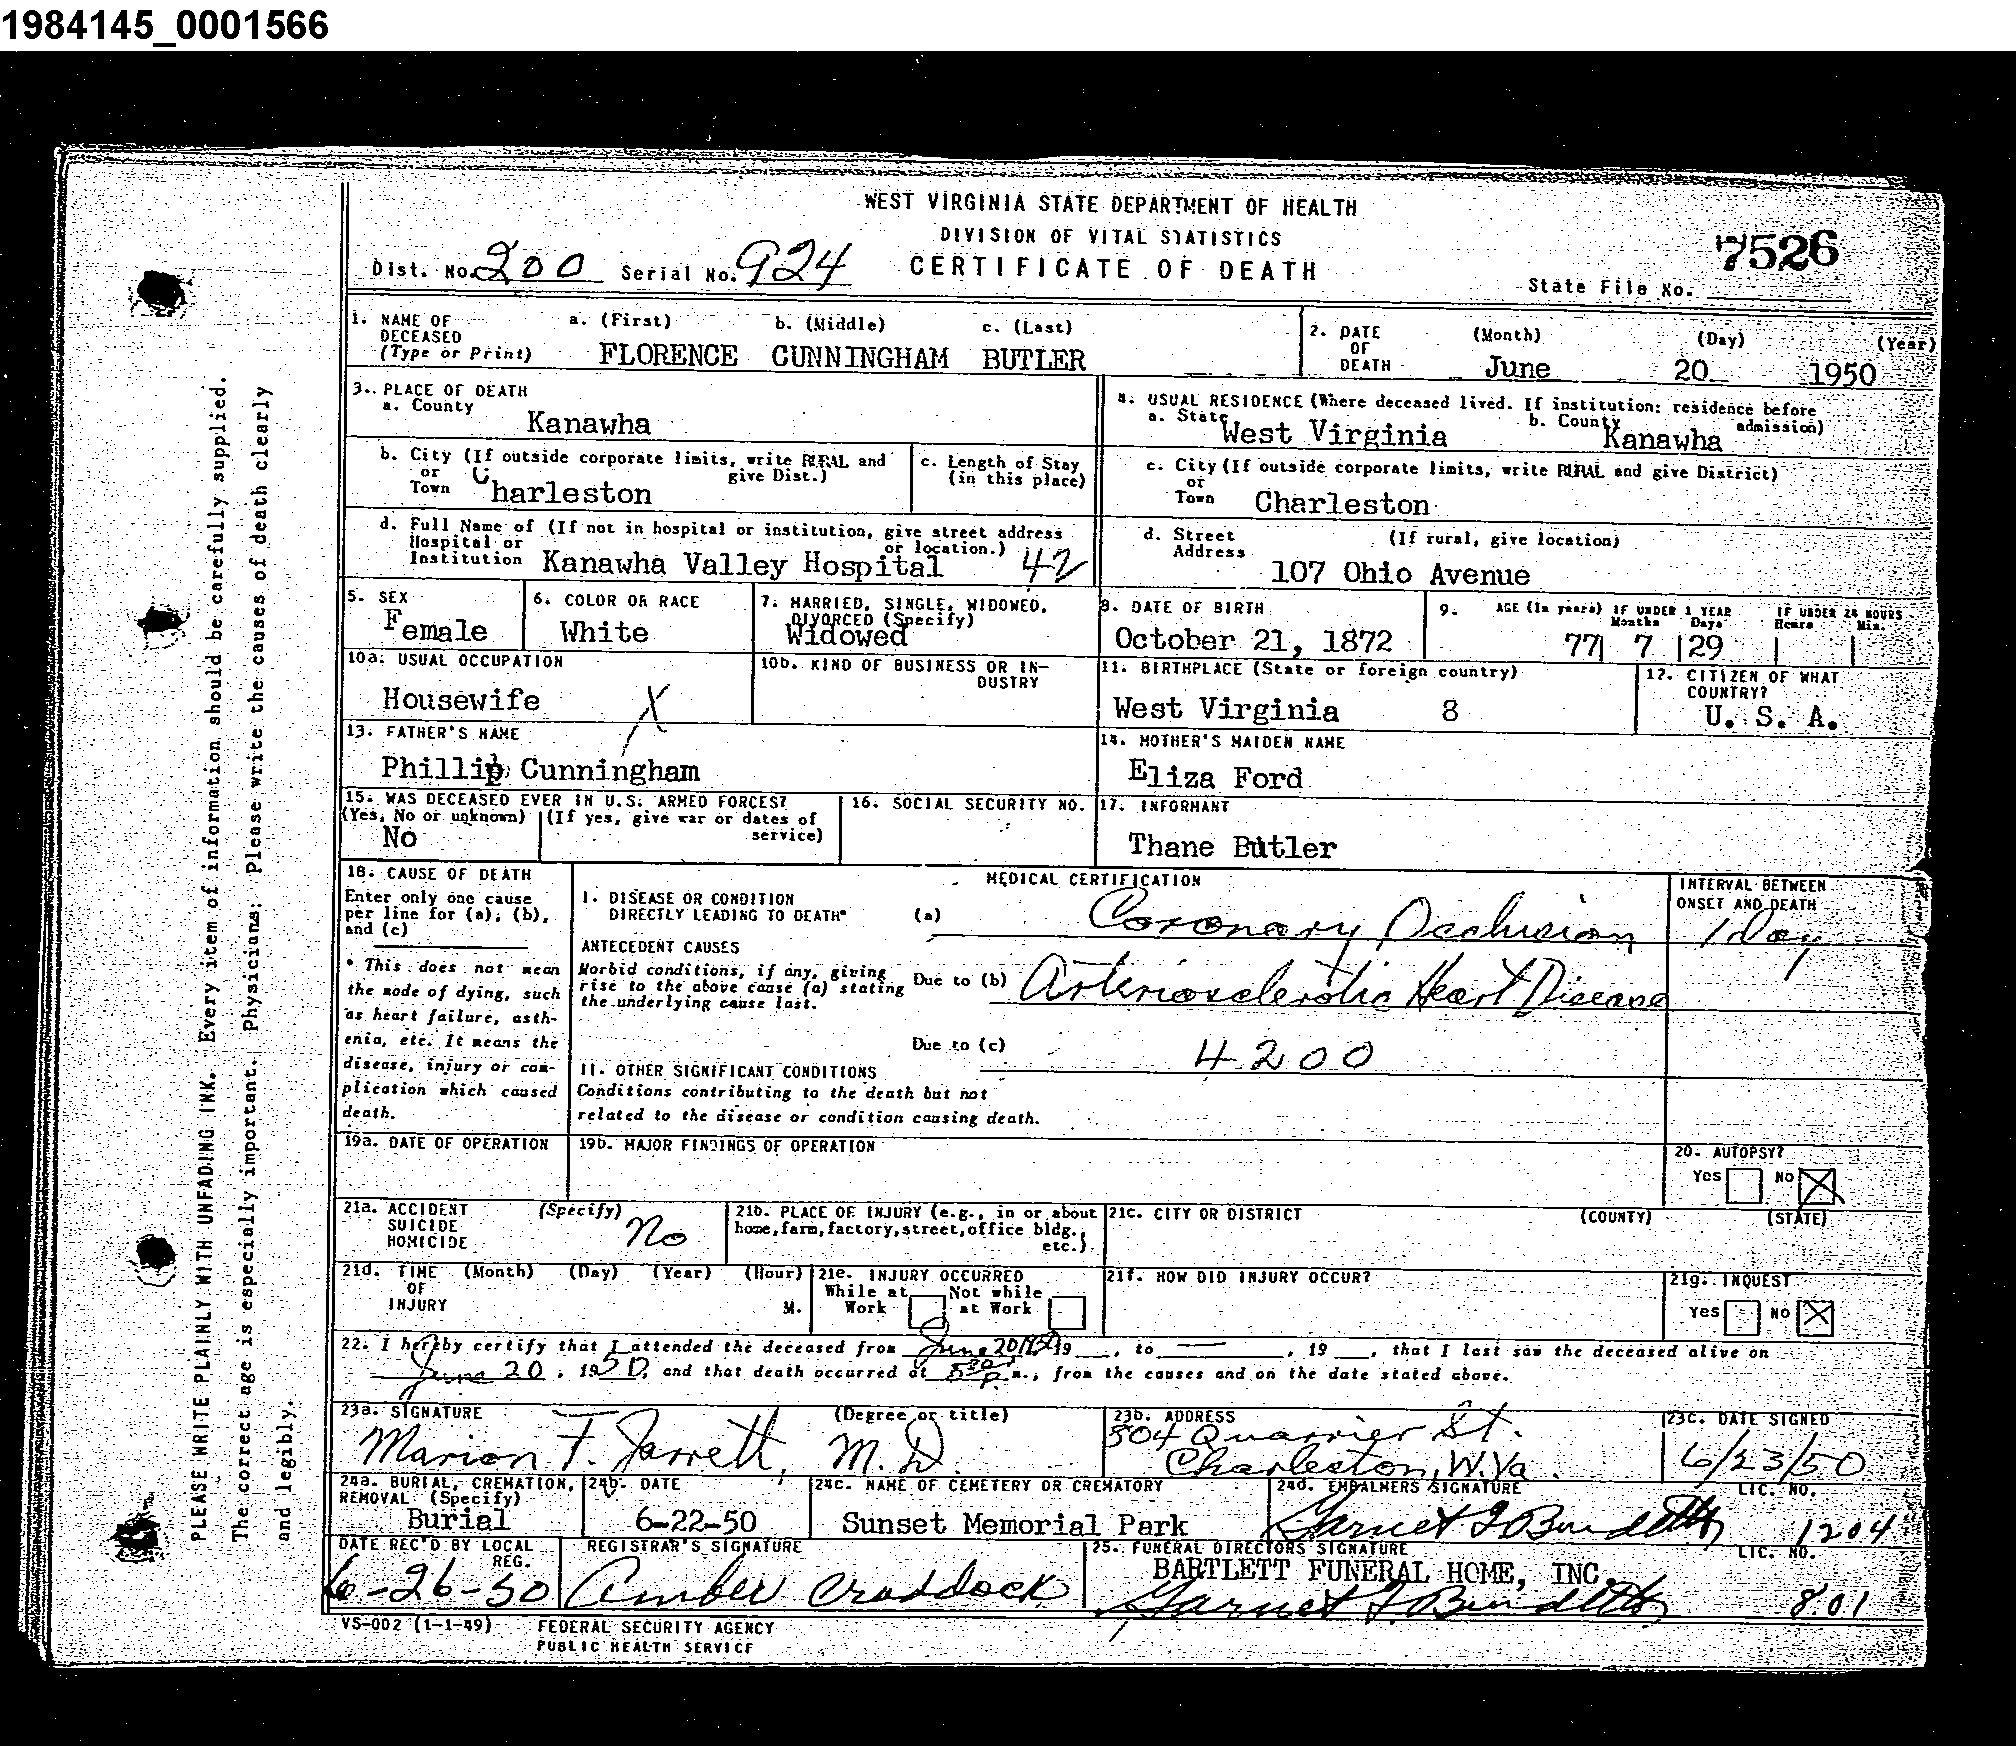 1984145_0001566
WEST VIRGINIA STATE DEPARTMENT OF HEALTH
DIVISION OF VITAL STATISTICS
CERTIFICATE OF DEATH
Dist. No. 200 Serial No. 924
7526
State File No.
1. NAME OF DECEASED (Type or Print) a. (First) b. (Middle) c. (Last)
FLORENCE CUNNINGHAM BUTLER
2. DATE OF DEATH (Month) (Day) (Year)
June 20 1950
3. PLACE OF DEATH
a. County
Kanawha
4. USUAL RESIDENCE (Where deceased lived. If institution: residence before admission)
a. State West Virginia b. County Kanawha
b. City or Town (If outside corporate limits, write RURAL and give Dist.)
Charleston
c. Length of Stay (in this place)
c. City or Town (If outside corporate limits, write RURAL and give District)
Charleston
d. Full Name of Hospital or Institution (If not in hospital or institution, give street address or location.)
Kanawha Valley Hospital 42
d. Street Address (If rural, give location)
107 Ohio Avenue
5. SEX
Female
6. COLOR OR RACE
White
7. MARRIED, SINGLE, WIDOWED, DIVORCED (Specify)
Widowed
8. DATE OF BIRTH
October 21, 1872
9. AGE (In years) IF UNDER 1 YEAR Months Days IF UNDER 24 HOURS Hours Min.
77 7 29
10a. USUAL OCCUPATION
Housewife X
10b. KIND OF BUSINESS OR INDUSTRY
11. BIRTHPLACE (State or foreign country)
West Virginia 8
12. CITIZEN OF WHAT COUNTRY?
U. S. A.
13. FATHER'S NAME
Phillip Cunningham
14. MOTHER'S MAIDEN NAME
Eliza Ford
15. WAS DECEASED EVER IN U.S. ARMED FORCES?
(Yes, No or unknown) (If yes, give war or dates of service)
No
16. SOCIAL SECURITY NO.
17. INFORMANT
Thane Butler
18. CAUSE OF DEATH
Enter only one cause per line for (a), (b), and (c)
* This does not mean the mode of dying, such as heart failure, asthenia, etc. It means the disease, injury or complication which caused death.
MEDICAL CERTIFICATION
INTERVAL BETWEEN ONSET AND DEATH
I. DISEASE OR CONDITION DIRECTLY LEADING TO DEATH* (a) Coronary Occlusion 1 Day
ANTECEDENT CAUSES
Morbid conditions, if any, giving rise to the above cause (a) stating the underlying cause last.
Due to (b) Arteriosclerotic Heart Disease
Due to (c) 4200
II. OTHER SIGNIFICANT CONDITIONS
Conditions contributing to the death but not related to the disease or condition causing death.
19a. DATE OF OPERATION
19b. MAJOR FINDINGS OF OPERATION
20. AUTOPSY?
Yes No X
21a. ACCIDENT SUICIDE HOMICIDE (Specify)
No
21b. PLACE OF INJURY (e.g., in or about home, farm, factory, street, office bldg., etc.)
21c. CITY OR DISTRICT (COUNTY) (STATE)
21d. TIME OF INJURY (Month) (Day) (Year) (Hour) M.
21e. INJURY OCCURRED
While at Work Not while at Work
21f. HOW DID INJURY OCCUR?
21g. INQUEST
Yes No X
22. I hereby certify that I attended the deceased from June 20 1950 19 , to — , 19 , that I last saw the deceased alive on
June 20, 1950, and that death occurred at 5:30 p. m., from the causes and on the date stated above.
23a. SIGNATURE (Degree or title)
Marion F. Jarrett, M. D.
23b. ADDRESS
504 Quarrier St.
Charleston, W. Va.
23c. DATE SIGNED
6/23/50
24a. BURIAL, CREMATION, REMOVAL (Specify)
Burial
24b. DATE
6-22-50
24c. NAME OF CEMETERY OR CREMATORY
Sunset Memorial Park
24d. EMBALMERS SIGNATURE LIC. NO.
Garnet J Burdette 1204
DATE REC'D BY LOCAL REG.
6-26-50
REGISTRAR'S SIGNATURE
Amber Craddock
25. FUNERAL DIRECTORS SIGNATURE LIC. NO.
BARTLETT FUNERAL HOME, INC.
Garnet J. Burdette 801
VS-002 (1-1-49) FEDERAL SECURITY AGENCY
PUBLIC HEALTH SERVICE
PLEASE WRITE PLAINLY WITH UNFADING INK. Every item of information should be carefully supplied.
The correct age is especially important. Physicians: Please write the causes of death clearly
and legibly.